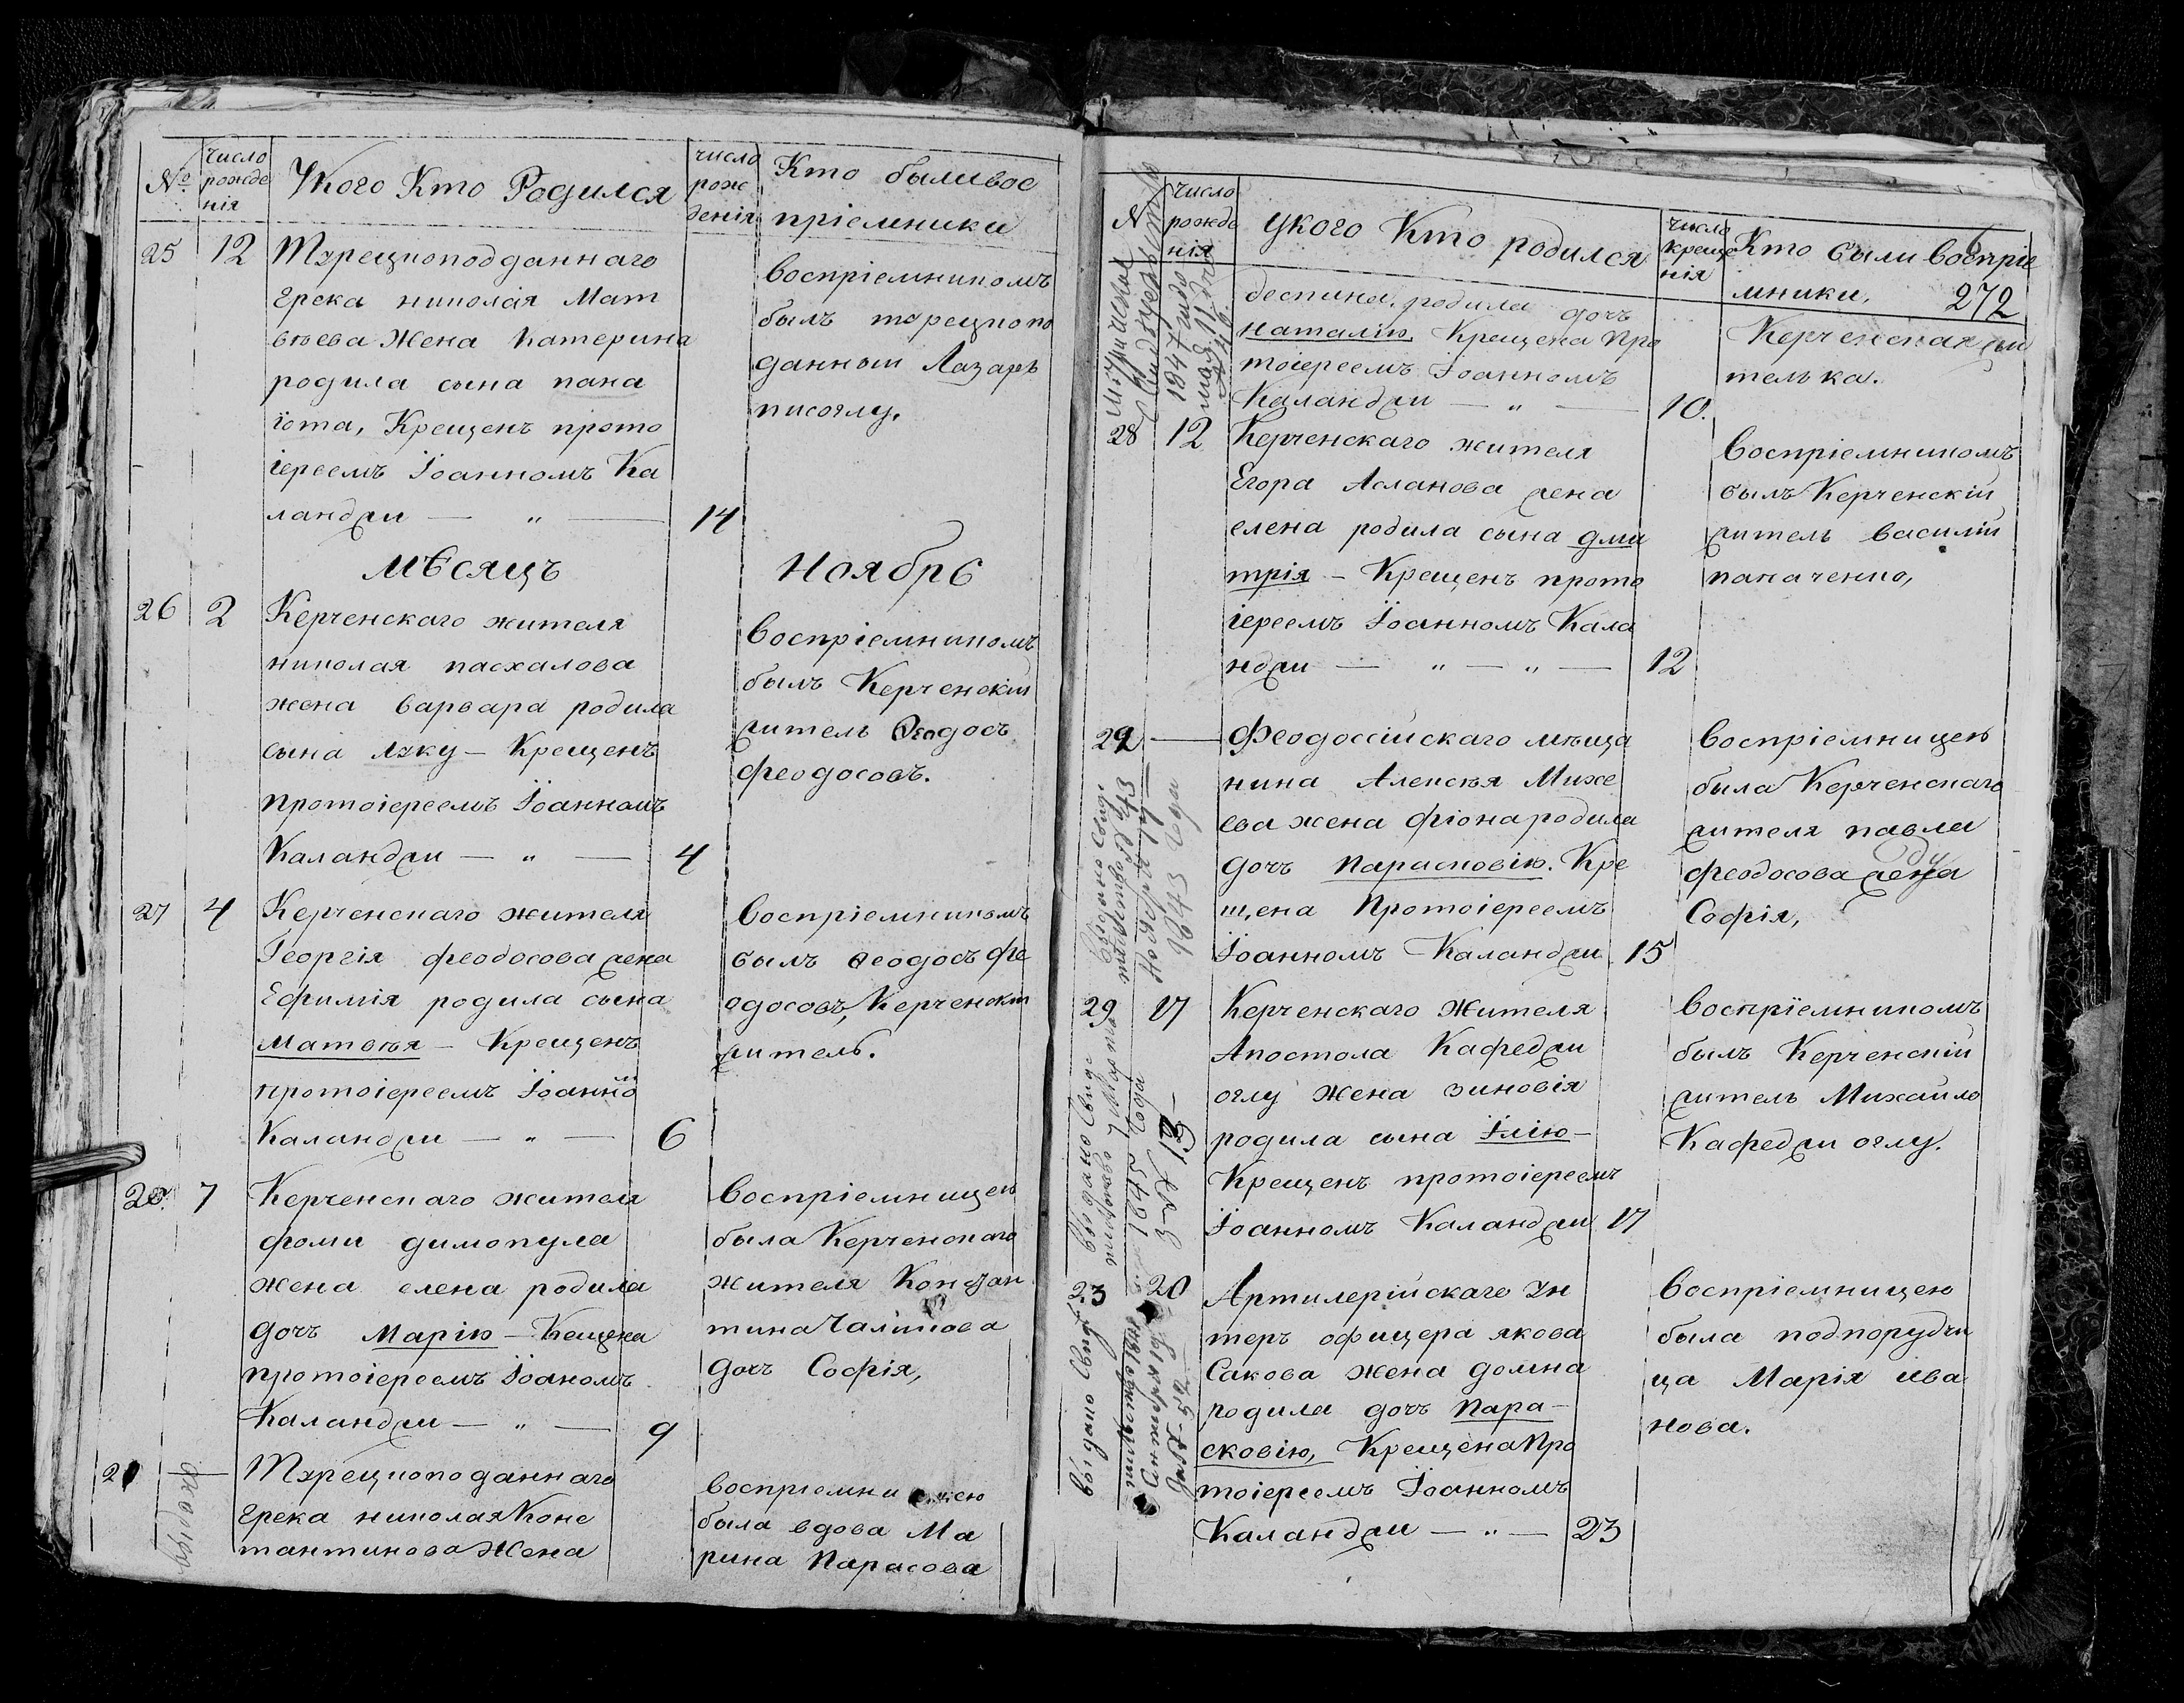 №
число
рожде
нія
Укого Кто Родился
число
рож
денія
Кто были вос
пріемники
25
12
Турецкоподданнаго
грека николая Мат
вѣева Жена Катерина
родила сына пана
їота, Крещенъ прото
іереемъ Іоанномъ Ка
ланджи — „ —
14
воспріемникомъ
былъ турецкопо
данный Лазарь
писоглу.
мѣсяцъ
ноябрь
26
2
Керченскаго жителя
николая пасхалова
жена варвара родила
сына луку — Крещенъ
протоіереемъ Іоанномъ
Каланджи — „ —
4
воспріемникомъ
былъ Керченскій
житель Ѳеодосъ
феодосовъ.
27
4
Керченскаго жителя
Георгія феодосова жена
Ефимія родила сына
Матвѣя — Крещенъ
протоіереемъ Іоанно
Каланджи — „ —
6
воспріемникомъ
былъ Ѳеодосъ фе
одосовъ, Керченскій
житель.
7
Керченскаго жителя
фомы димопула
жена елена родила
дочь Марію — Кещена
протоіереемъ Іоаномъ
Каланджи — „ —
9
воспріемницею
была Керченскаго
жителя Констан
тина Чаликова
дочь Софія,
Турецкоподаннаго
грека николая Конс
тантинова Жена
воспріемницею
была вдова Ма
рина Парасова
№
Число
рожде
нія
укого Кто родился
число
креще
нія
Кто были воспріе
мники,
272
деспина, родила дочь
наталію, Крещена Про
тоіереемъ Іоанномъ
Каланджи — „ —
10.
Керченская жи
телька.
28
12
Керченскаго жителя
Егора Асланова жена
елена родила сына дми
трія — Крещенъ прото
іереемъ Іоанномъ Кала
нджи — „ — „ —
12
воспріемникомъ
былъ Керченскій
житель василій
паначенко,
—
Феодосійскаго мѣща
нина Алексѣя Михе
ева жена фіона родила
дочь Парасковію. Кре
щена Протоіереемъ
Іоанномъ Каланджи
15
воспріемницею
была Керченскаго
жителя павла
феодосова жена
Софія,
Выдано Свиде
тельство № 43
Ноября
1843 года
29
17
Керченскаго Жителя
Апостола Кафеджи
оглу Жена зиновія
родила сына Ілію —
Крещенъ протоіереемъ
Іоанномъ Каланджи
17
воспріемникомъ
былъ Керченскій
житель Михайло
Кафеджи оглу.
выдано Свиде
тельство 7 Марта
1845 Года
20
Артилерійскаго Ун
теръ офицера якова
Сакова жена домна
родила дочь Пара—
сковію, Крещена Про
тоіереемъ Іоанномъ
Каланджи — „ —
23
воспріемницею
была подпорудчи
ца Марія ива
нова.
выдано Свиде